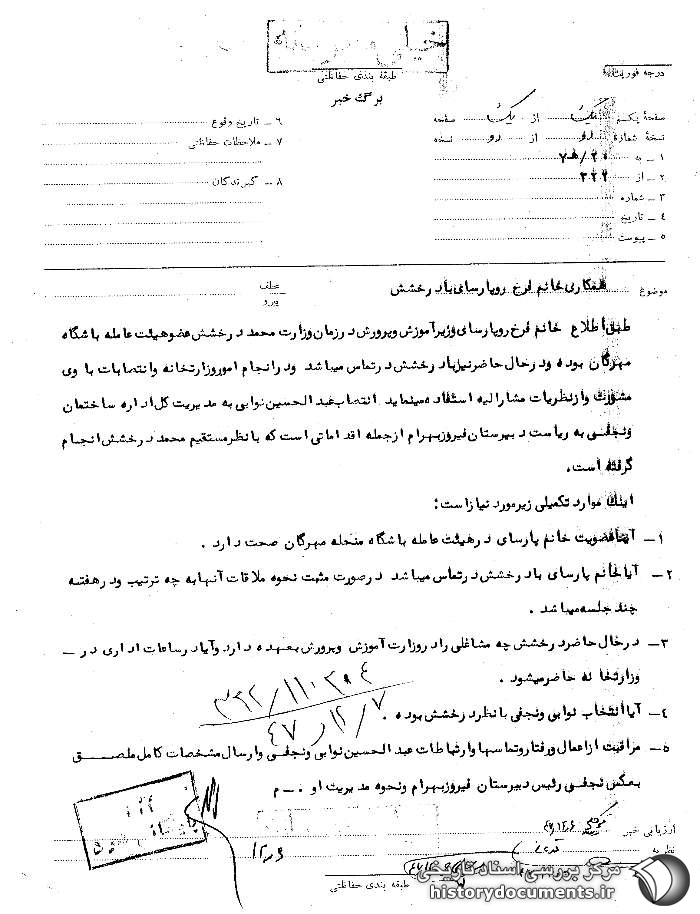 خیلی محرمانه
درجه فوریت
طبقه بندی حفاظتی
برگ خبر
صفحهٔ یکم از یک صفحه
نسخهٔ شماره دو از دو نسخه
۱ ـ به ۲۰هـ۷
۲ ـ از ۳۲۲
۳ ـ شماره
۴ ـ تاریخ
۵ ـ پیوست
۶ ـ تاریخ وقوع
۷ ـ ملاحظات حفاظتی
۸ ـ گیرندگان
موضوع همکاری خانم فرخ رو پارسای با درخشش
عطف
پیرو
طبق اطلاع خانم فرخ رو پارسای وزیر آموزش و پرورش در زمان وزارت محمد درخشش عضو هیئت عامله باشگاه
مهرگان بوده و در حال حاضر نیز با درخشش در تماس میباشد و در انجام امور وزارتخانه و انتصابات با وی
مشورت و از نظریات مشارالیه استفاده مینماید انتصاب عبدالحسین نوابی به مدیریت کل اداره ساختمان
و نجفی به ریاست دبیرستان فیروز بهرام از جمله اقداماتی است که با نظر مستقیم محمد درخشش انجام
گرفته است.
اینک موارد تکمیلی زیر مورد نیاز است:
۱ ـ آیا عضویت خانم پارسای در هیئت عامله باشگاه منحله مهرگان صحت دارد .
۲ ـ آیا خانم پارسای با درخشش در تماس میباشد در صورت مثبت نحوه ملاقات آنها به چه ترتیب و در هفته
چند جلسه میباشد .
۳ ـ در حال حاضر درخشش چه مشاغلی را در وزارت آموزش و پرورش بعهده دارد و آیا در ساعات اداری در ـ
وزارتخانه حاضر میشود .
۴ ـ آیا انتخاب نوابی و نجفی با نظر درخشش بوده .
۵ ـ مراقبت از اعمال و رفتار و تماسها و ارتباطات عبدالحسین نوابی و نجفی و ارسال مشخصات کامل ملصق
بعکس نجفی رئیس دبیرستان فیروز بهرام و نحوه مدیریت او . ـ م
۴۷/۱۲/۷
ارزیابی خبر
نظریه
طبقه بندی حفاظتی
مرکز بررسی اسناد تاریخی
historydocuments.ir